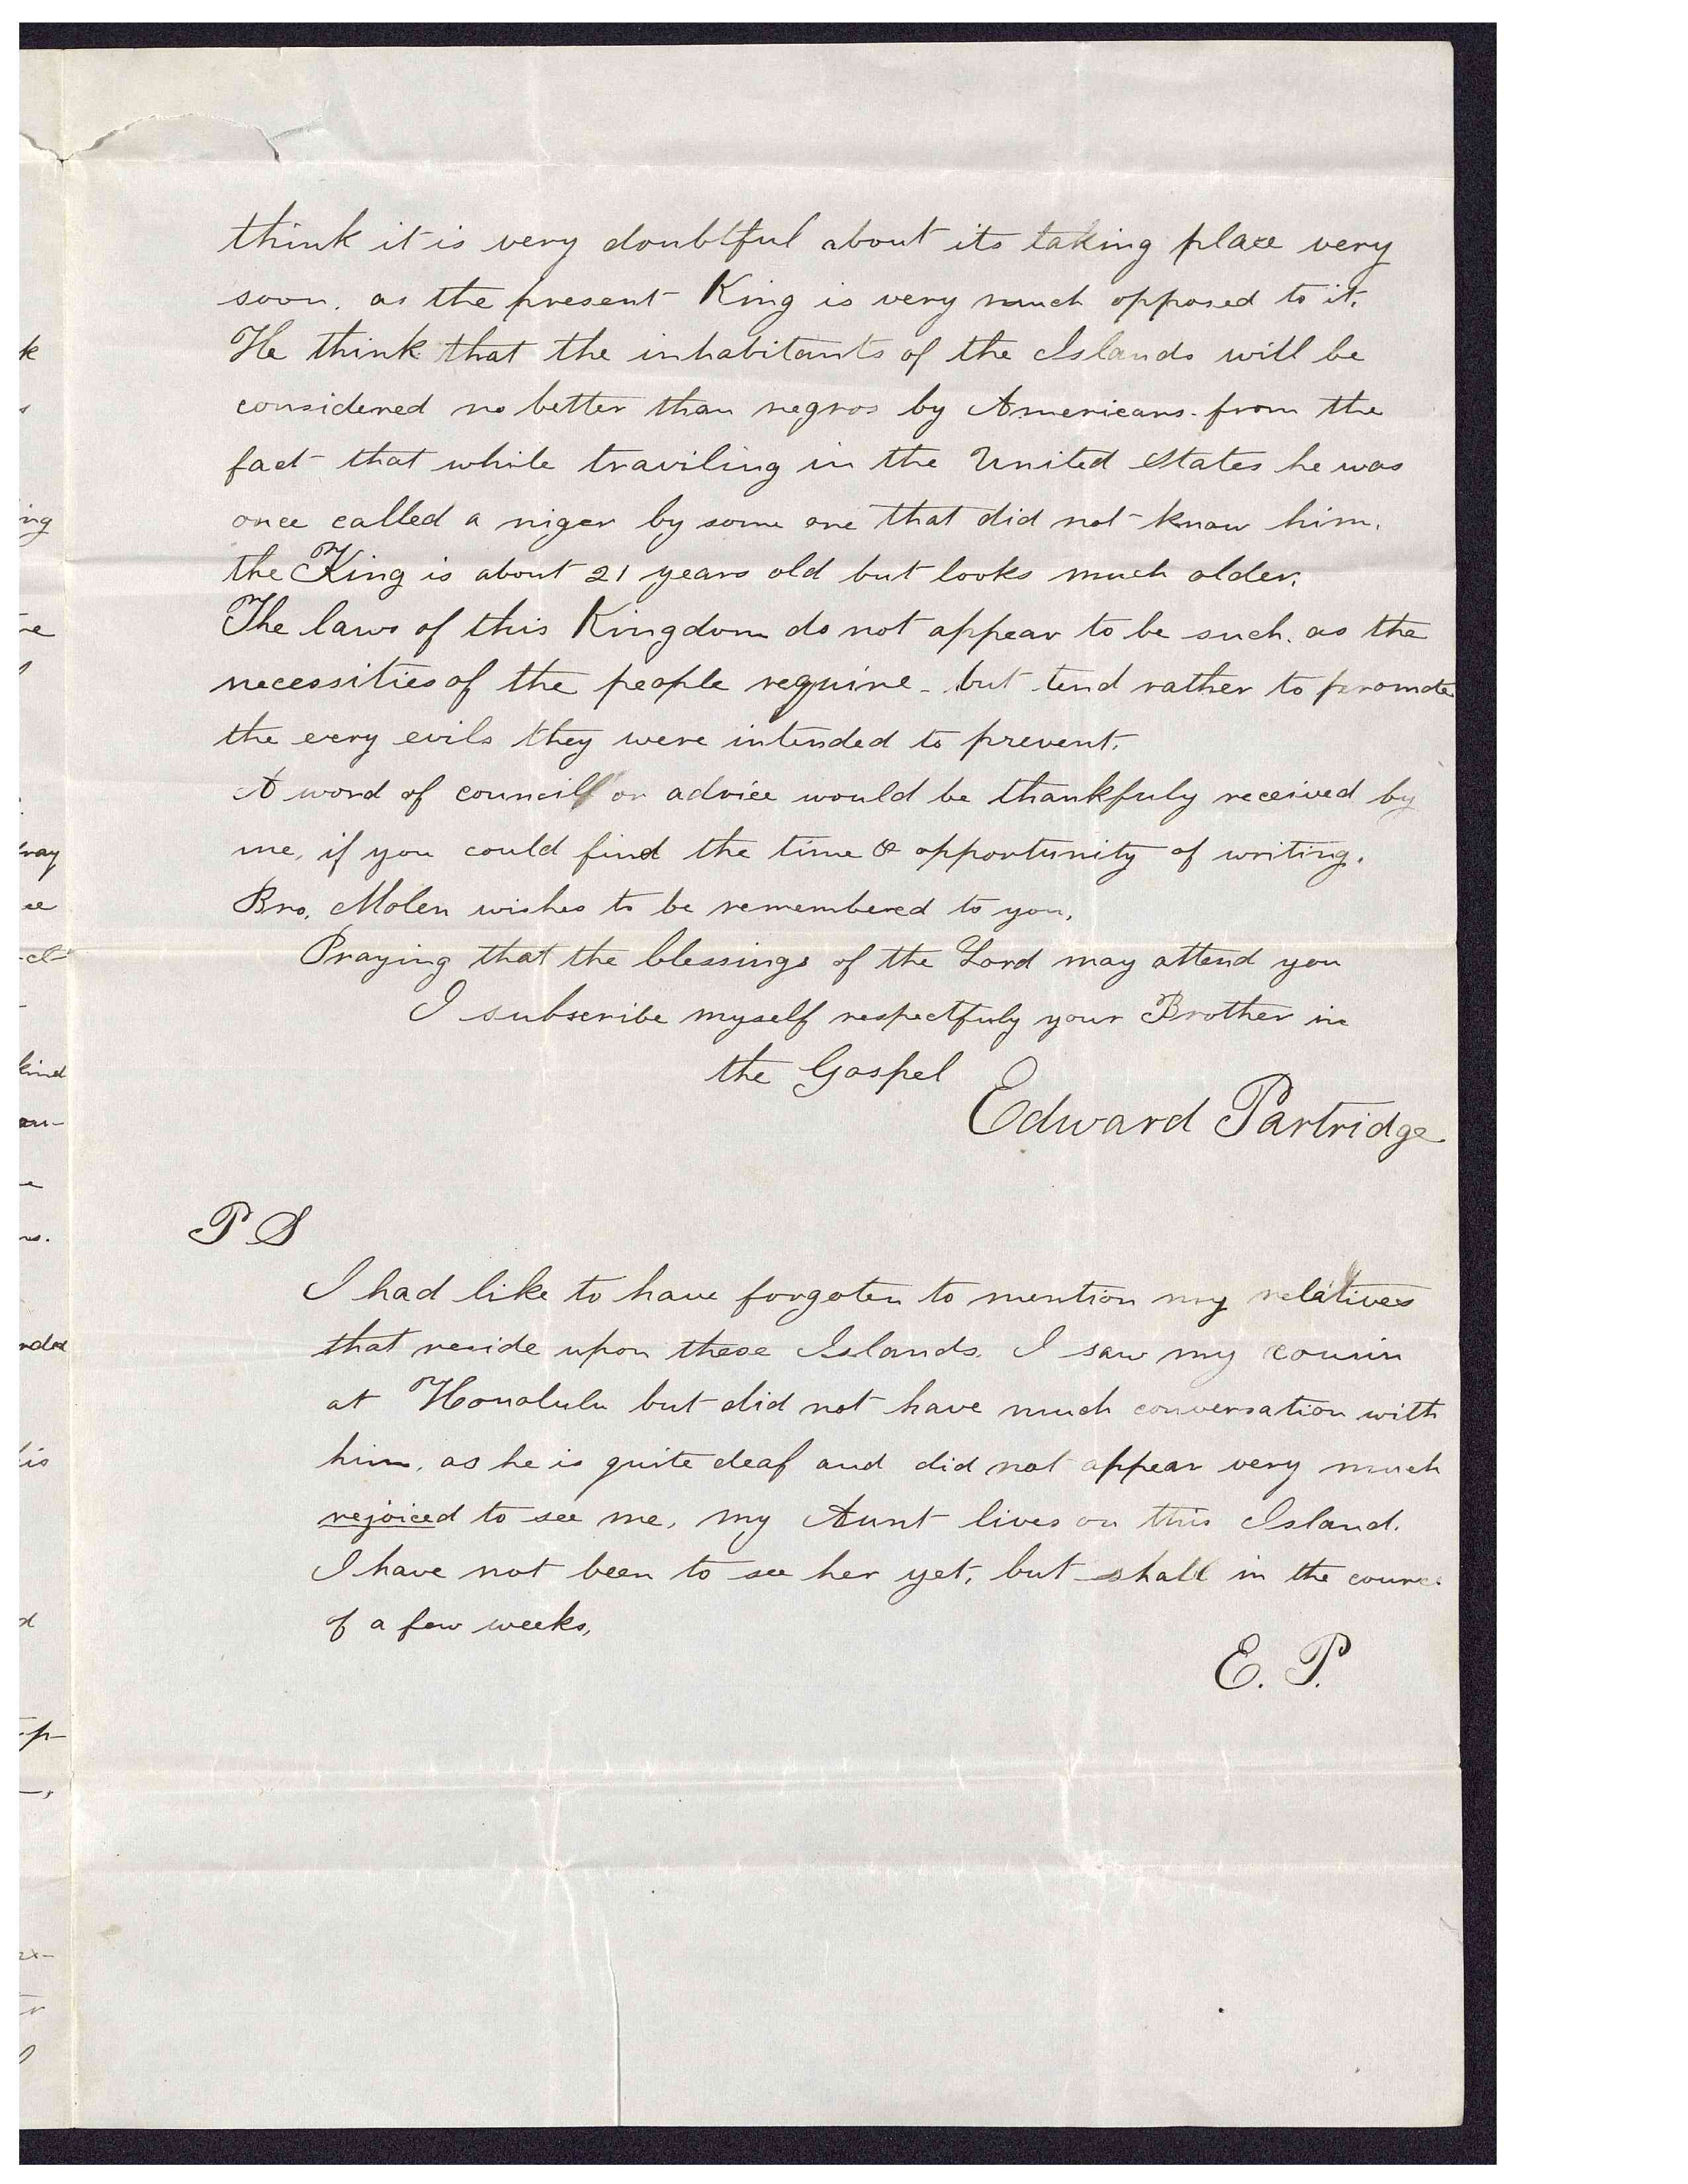 think it is very doubtful about its taking place very
soon. as the present King is very much opposed to it.
He think that the inhabitants of the Islands will be
considered no better than negros by Americans. from the
fact that while traviling in the United States he was
once called a niger by some one that did not know him.
the King is about 21 years old but looks much older.
The laws of this Kingdom do not appear to be such. as the
necessities of the people require - but tend rather to promote
the every evils they were intended to prevent.
A word of council or advice would be thankfuly received by
me, if you could find the time & opportunity of writing.
Bro. Molen wishes to be remembered to you.
Praying that the blessings of the Lord may attend you
I subscribe myself respectfuly your Brother in
the Gospel
Edward Partridge
P S
I had like to have forgoten to mention my relatives
that reside upon these Islands. I saw my cousin
at Honolulu but did not have much conversation with
him. as he is quite deaf and did not appear very much
rejoiced to see me. my Aunt lives on this Island.
I have not been to see her yet, but shall in the cource
of a few weeks,
E. P.